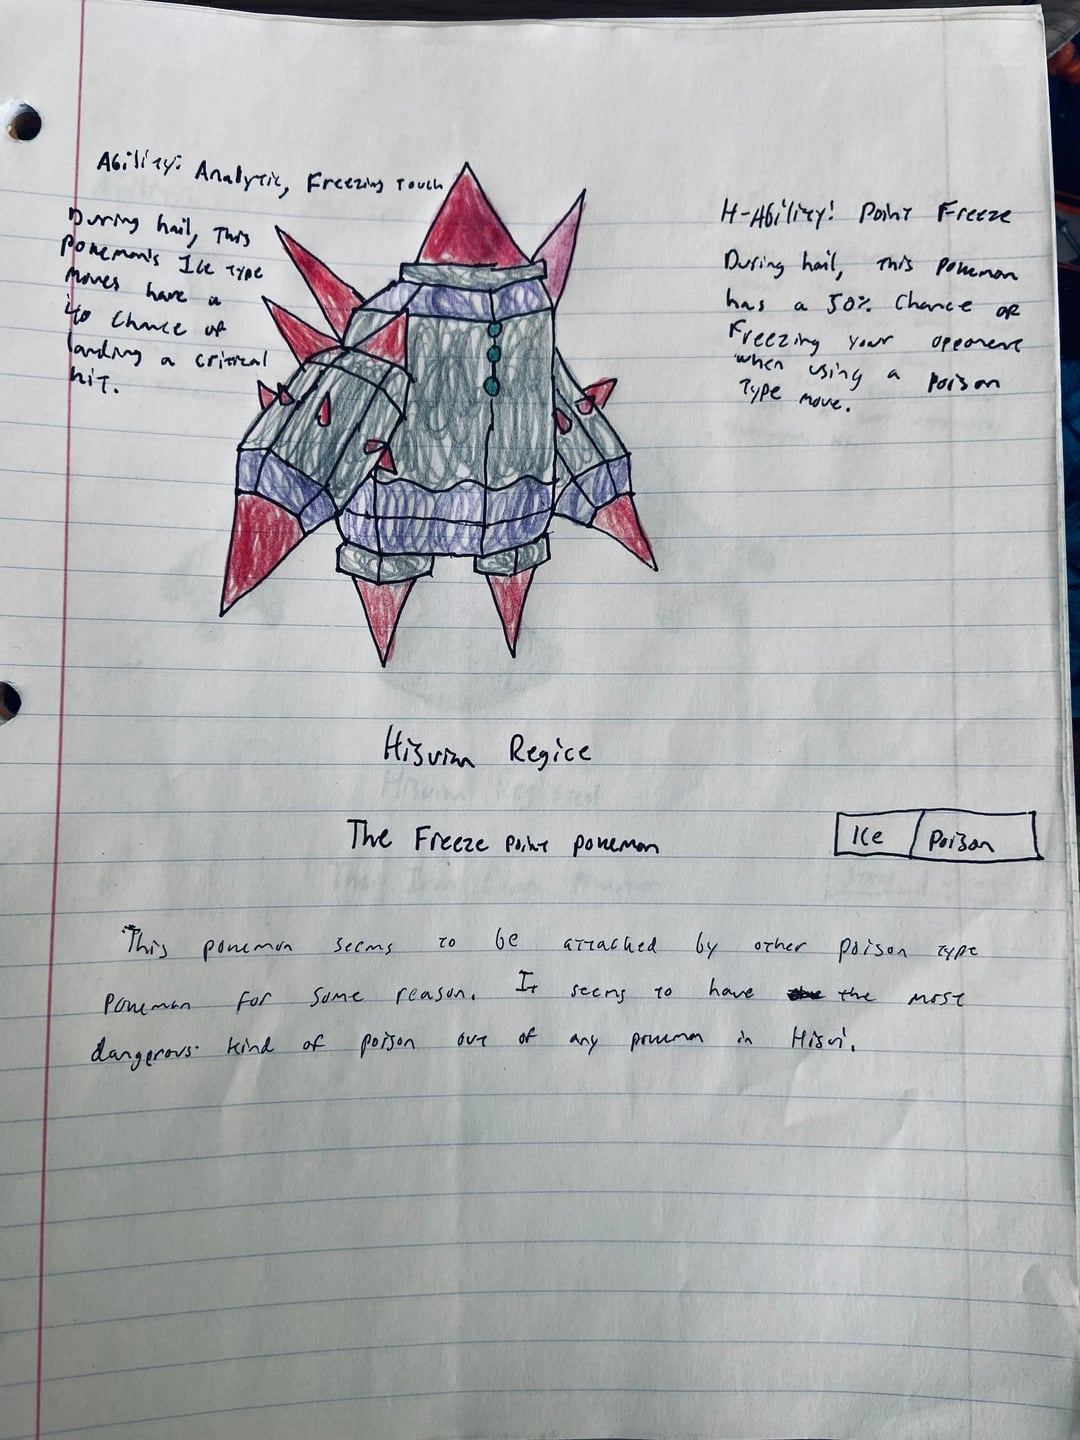 Ability: Analytic, Freezing Touch
During hail, This
Pokemon's Ice type
moves have a
chance of
landing a critical
hit.
H-Ability: Point Freeze
During hail, This pokemon
has a 50% chance of
Freezing your opponent
when using a poison
type move.
Hisuian Regice
The Freeze point pokemon
Ice Poison
This pokemon seems to be attacked by other poison type
pokemon for some reason. It seems to have the most
dangerous kind of poison out of any pokemon in Hisui.